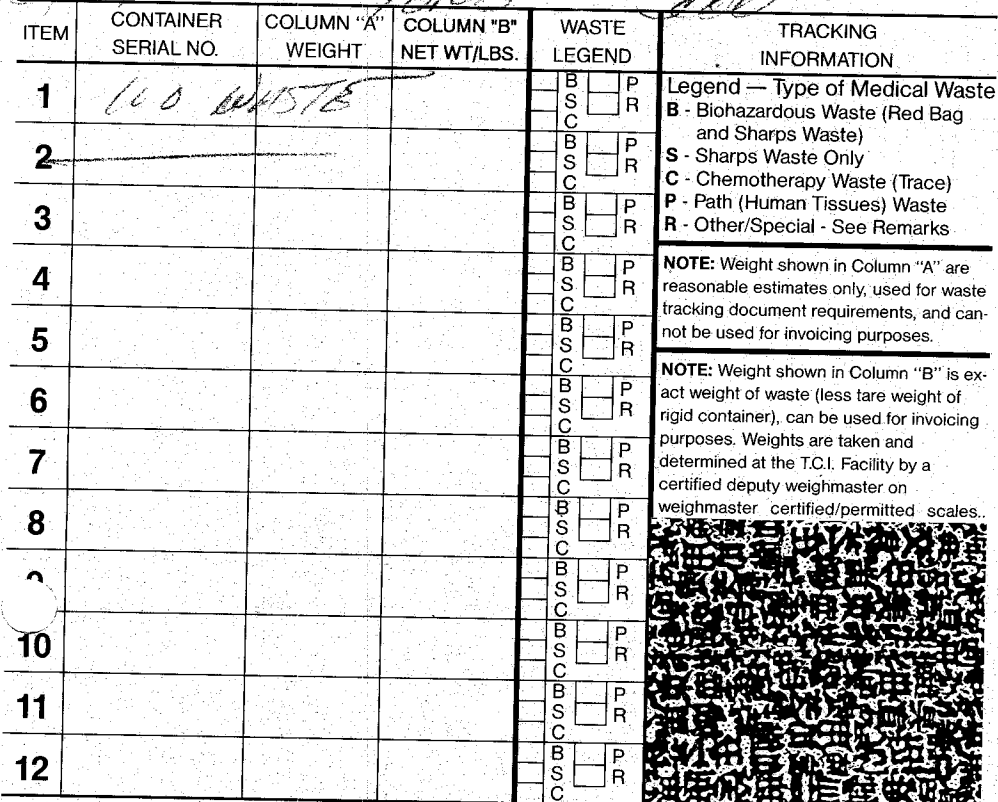 ITEM CONTAINER SERIAL NO. COLUMN "A" WEIGHT COLUMN "B" NET WT/LBS. WASTE LEGEND TRACKING INFORMATION
1 WASTE B S C P R
2 B S C P R
3 B S C P R
4 B S C P R
5 B S C P R
6 B S C P R
7 B S C P R
8 B S C P R
B S C P R
10 B S C P R
11 B S C P R
12 B S C P R
Legend — Type of Medical Waste
B - Biohazardous Waste (Red Bag
and Sharps Waste)
S - Sharps Waste Only
C - Chemotherapy Waste (Trace)
P - Path (Human Tissues) Waste
R - Other/Special - See Remarks
NOTE: Weight shown in Column "A" are
reasonable estimates only, used for waste
tracking document requirements, and can-
not be used for invoicing purposes.
NOTE: Weight shown in Column "B" is ex-
act weight of waste (less tare weight of
rigid container), can be used for invoicing
purposes. Weights are taken and
determined at the T.C.I. Facility by a
certified deputy weighmaster on
weighmaster certified/permitted scales..